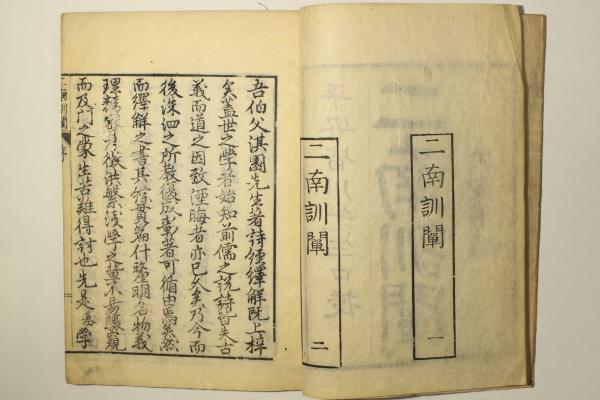 二南訓闡 一
二南訓闡 二
吾伯父淇園先生著詩經繹解既上梓
矣蓋世之學者始知前儒之說詩皆失古
義而道之因致湮晦者亦已久矣乃今而
後洙泗之所教優成動者可循由焉矣然
而繹解之書其錯貫篇什發明名物義
理精覈考徵洪繁淺學之輩不易驟窺
而及門之蒙生苦難得討也先是憲學
二南訓闡 序